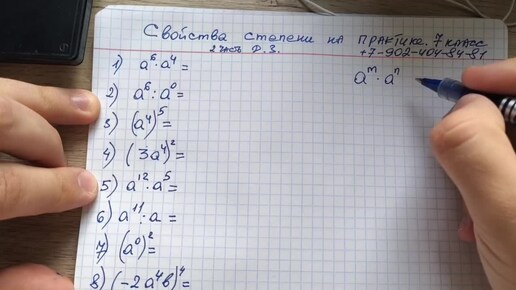 Свойства степени на практике. 7 класс
2 часть Д.З. +7-902-404-84-81
1) a⁶ · a⁴ =
aᵐ · aⁿ
2) a⁶ : a⁰ =
3) (a⁴)⁵ =
4) (3a⁴)² =
5) a¹² : a⁵ =
6) a¹¹ : a =
7) (a⁰)² =
8) (-2a⁴b)⁴ =